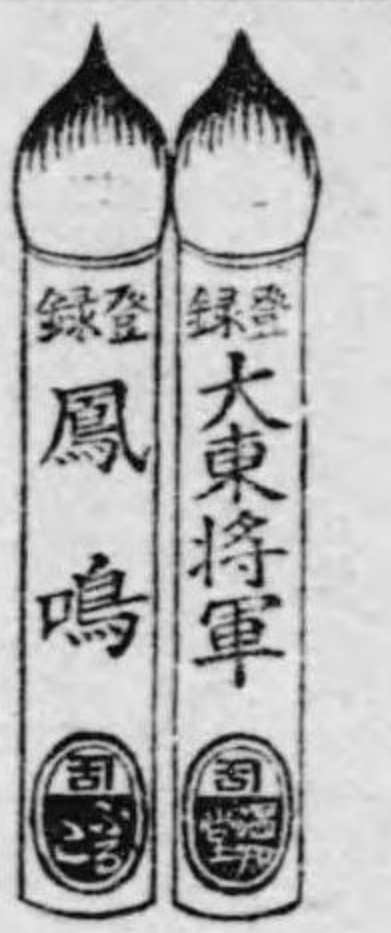 登録
大東將軍
登録
鳳鳴